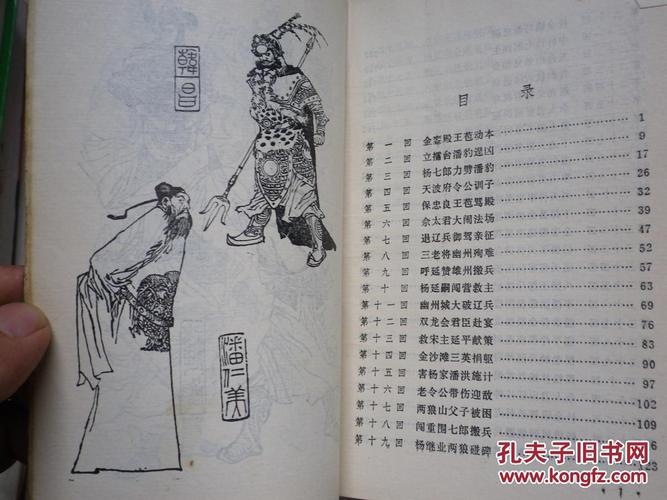 韓昌
潘仁美
目录
第一回 金銮殿王苞动本 1
第二回 立擂台潘豹逞凶 9
第三回 杨七郎力劈潘豹 17
第四回 天波府令公训子 26
第五回 保忠良王苞骂殿 32
第六回 佘太君大闹法场 39
第七回 退辽兵御驾亲征 47
第八回 三老将幽州殉难 52
第九回 呼延赞雄州搬兵 57
第十回 杨延嗣闯营救主 63
第十一回 幽州城大破辽兵 69
第十二回 双龙会君臣赴宴 76
第十三回 救宋主延平献策 83
第十四回 金沙滩三英捐躯 90
第十五回 害杨家潘洪施计 97
第十六回 老令公带伤迎敌 102
第十七回 两狼山父子被困 109
第十八回 闯重围七郎搬兵 6
第十九回 杨继业两狼碰碑 123
1
孔夫子旧书网
kongfz.com